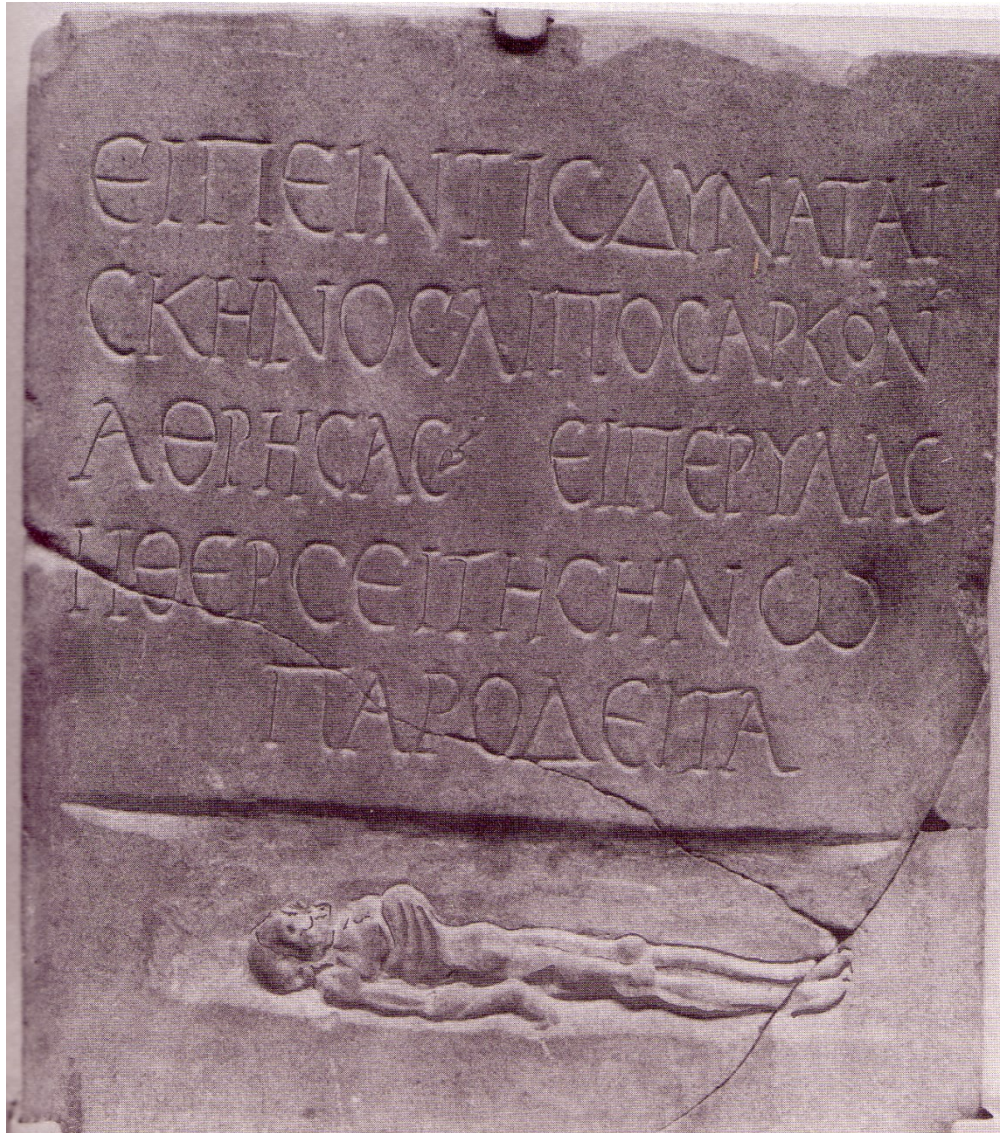 ΕΙΠΕΙΝΤΙϹΔΥΝΑΤΑΙ
ϹΚΗΝΟϹΛΙΠΟϹΑΡΚΟΝ
ΑΘΡΗϹΑϹ ΕΙΠΕΡΥΛΑϹ
ΗΘΕΡϹΕΙΤΗϹΗΝΩ
ΠΑΡΟΔΕΙΤΑ